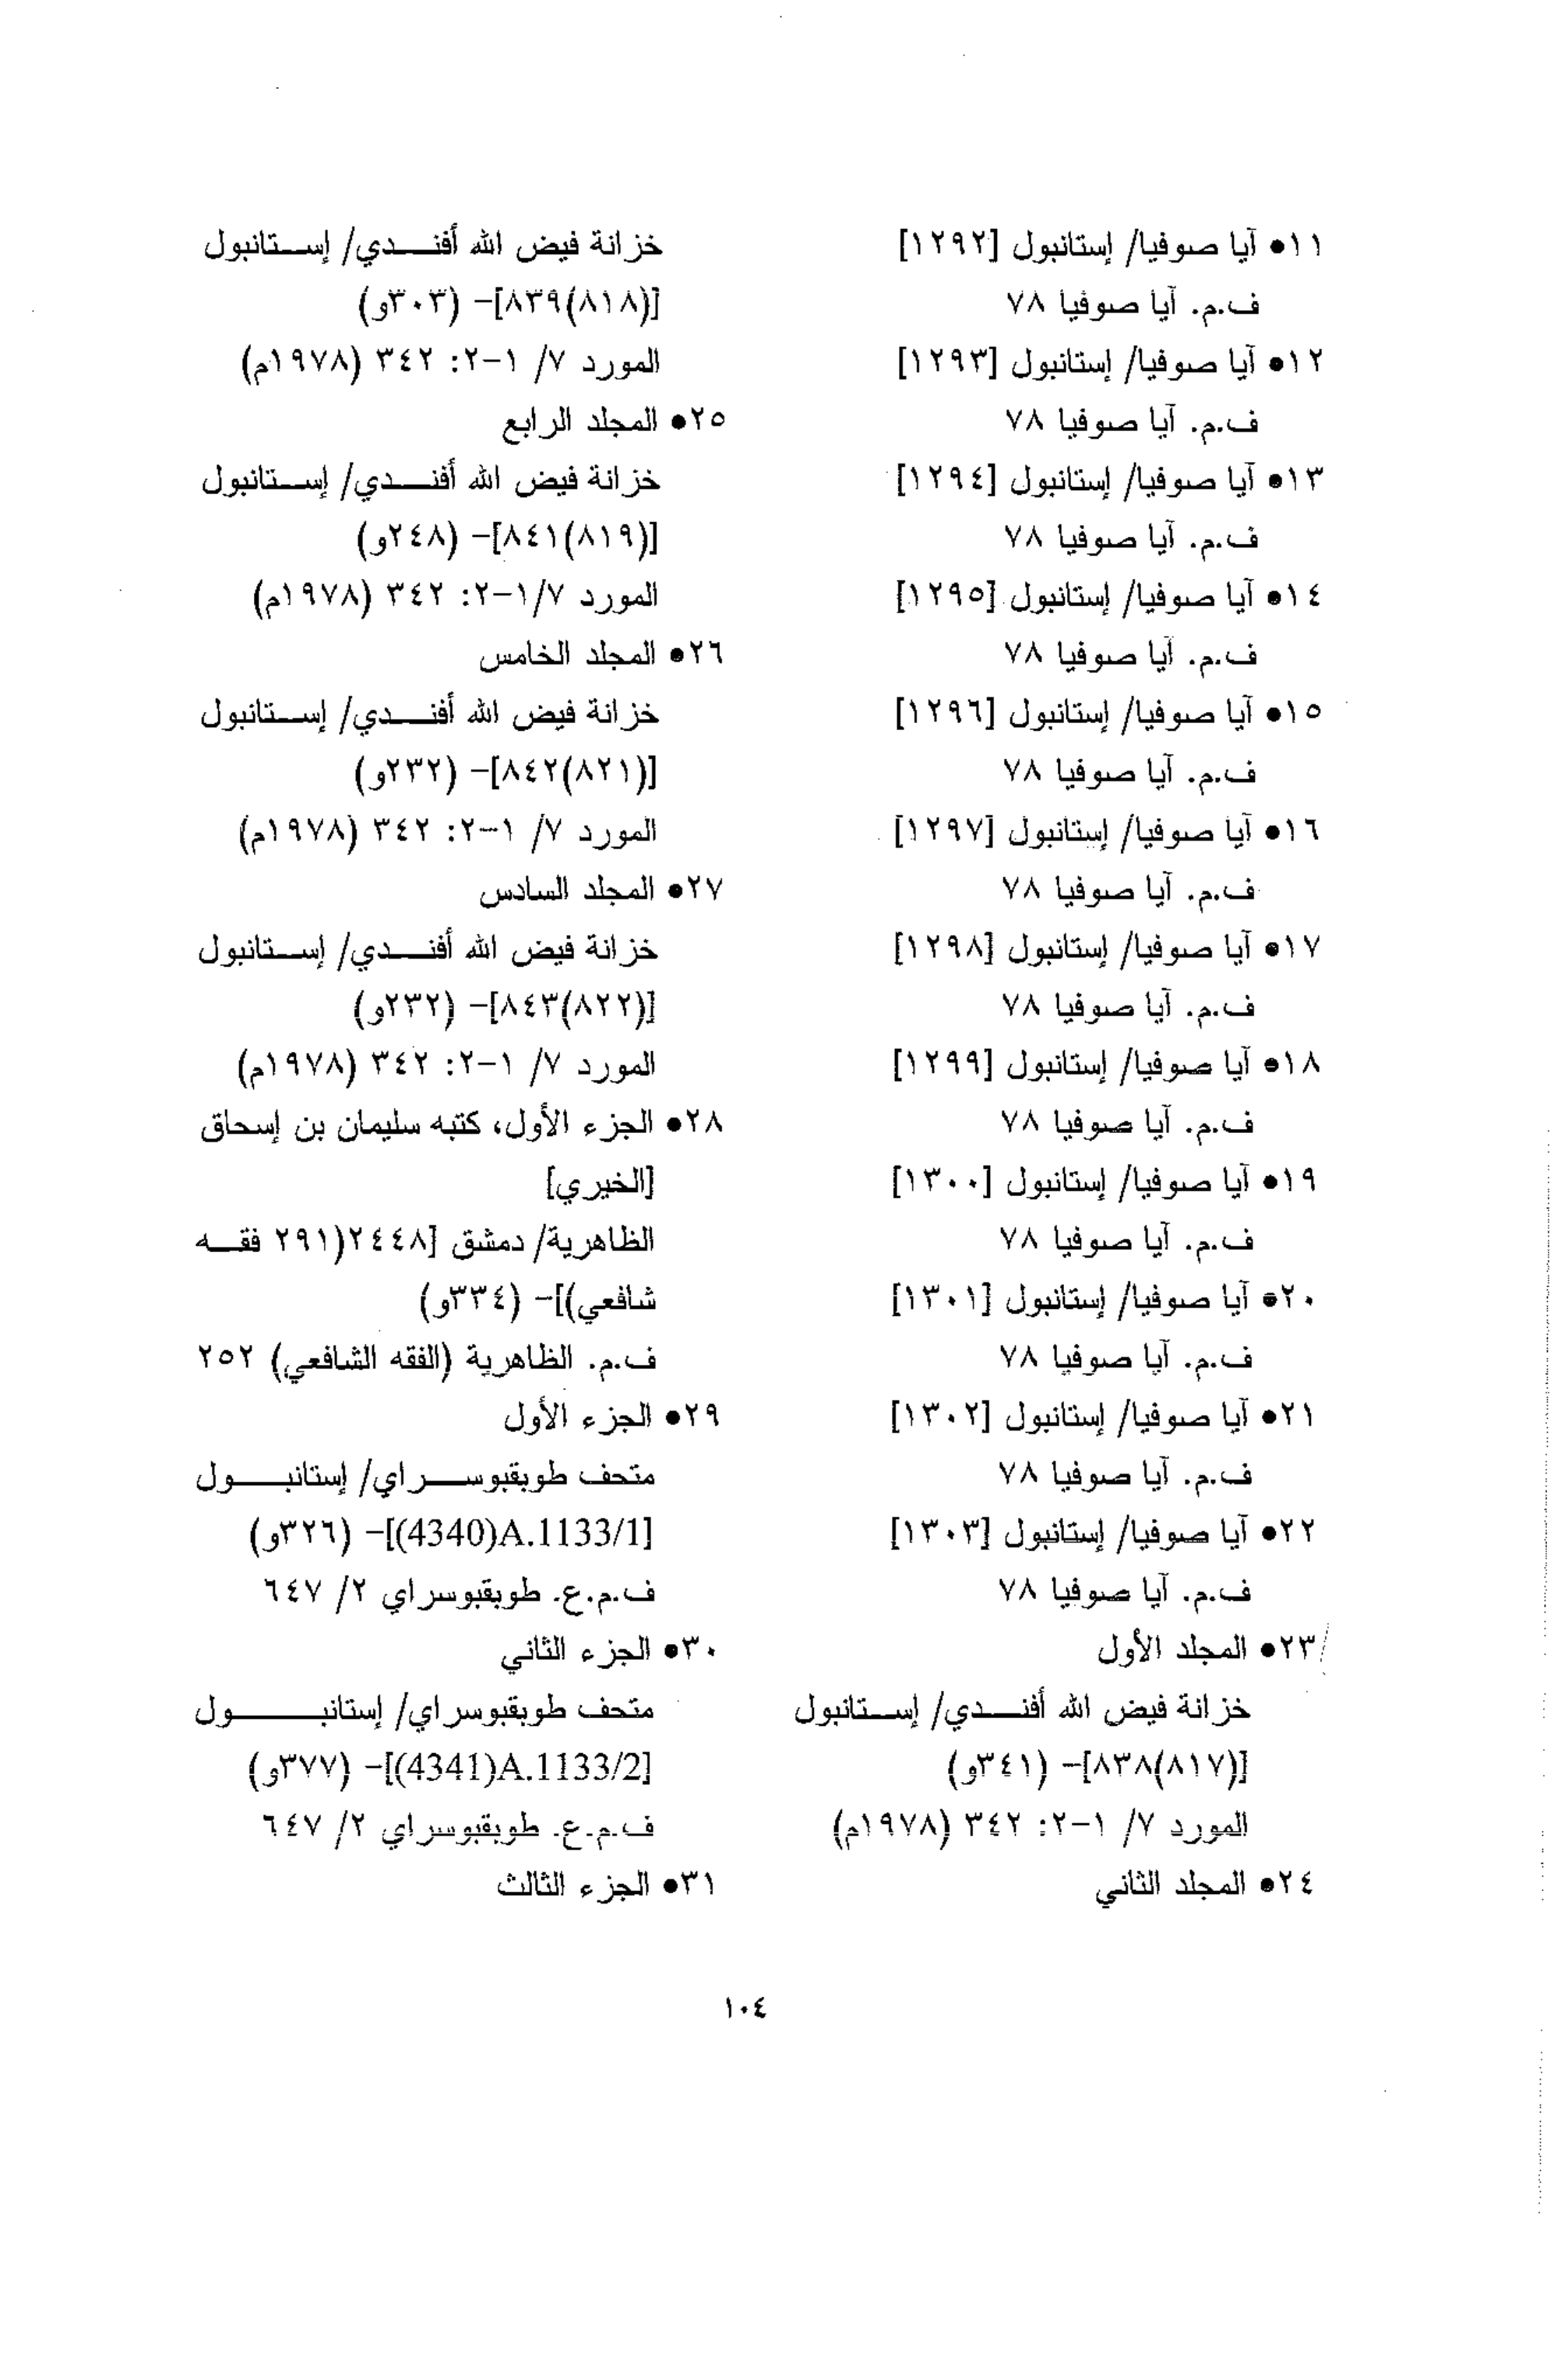 ١١• آيا صوفيا/ إستانبول [١٢٩٢]
ف.م. آيا صوفيا ٧٨
١٢• آيا صوفيا/ إستانبول [١٢٩٣]
ف.م. آيا صوفيا ٧٨
١٣• آيا صوفيا/ إستانبول [١٢٩٤]
ف.م. آيا صوفيا ٧٨
١٤• آيا صوفيا/ إستانبول [١٢٩٥]
ف.م. آيا صوفيا ٧٨
١٥• آيا صوفيا/ إستانبول [١٢٩٦]
ف.م. آيا صوفيا ٧٨
١٦• آيا صوفيا/ إستانبول [١٢٩٧]
ف.م. آيا صوفيا ٧٨
١٧• آيا صوفيا/ إستانبول [١٢٩٨]
ف.م. آيا صوفيا ٧٨
١٨• آيا صوفيا/ إستانبول [١٢٩٩]
ف.م. آيا صوفيا ٧٨
١٩• آيا صوفيا/ إستانبول [١٣٠٠]
ف.م. آيا صوفيا ٧٨
٢٠• آيا صوفيا/ إستانبول [١٣٠١]
ف.م. آيا صوفيا ٧٨
٢١• آيا صوفيا/ إستانبول [١٣٠٢]
ف.م. آيا صوفيا ٧٨
٢٢• آيا صوفيا/ إستانبول [١٣٠٣]
ف.م. آيا صوفيا ٧٨
٢٣• المجلد الأول
خزانة فيض الله أفنـــدي/ إســـتانبول
[(٨١٧)٨٣٨]- (٣٤١و)
المورد ٧/ ١-٢: ٣٤٢ (١٩٧٨م)
٢٤• المجلد الثاني
خزانة فيض الله أفنـــدي/ إســـتانبول
[(٨١٨)٨٣٩]- (٣٠٣و)
المورد ٧/ ١-٢: ٣٤٢ (١٩٧٨م)
٢٥• المجلد الرابع
خزانة فيض الله أفنـــدي/ إســـتانبول
[(٨١٩)٨٤١]- (٢٤٨و)
المورد ٧/١-٢: ٣٤٢ (١٩٧٨م)
٢٦• المجلد الخامس
خزانة فيض الله أفنـــدي/ إســـتانبول
[(٨٢١)٨٤٢]- (٢٣٢و)
المورد ٧/ ١-٢: ٣٤٢ (١٩٧٨م)
٢٧• المجلد السادس
خزانة فيض الله أفنـــدي/ إســـتانبول
[(٨٢٢)٨٤٣]- (٢٣٢و)
المورد ٧/ ١-٢: ٣٤٢ (١٩٧٨م)
٢٨• الجزء الأول، كتبه سليمان بن إسحاق
[الخيري]
الظاهرية/ دمشق [٢٤٤٨(٢٩١ فقـــه
شافعي)]- (٣٣٤و)
ف.م. الظاهرية (الفقه الشافعي) ٢٥٢
٢٩• الجزء الأول
متحف طوبقبوســـراي/ إستانبـــول
[A.1133/1(4340)]- (٣٢٦و)
ف.م.ع. طوبقبوسراي ٢/ ٦٤٧
٣٠• الجزء الثاني
متحف طوبقبوسراي/ إستانبـــول
[A.1133/2(4341)]- (٣٧٧و)
ف.م.ع. طوبقبوسراي ٢/ ٦٤٧
٣١• الجزء الثالث
١٠٤